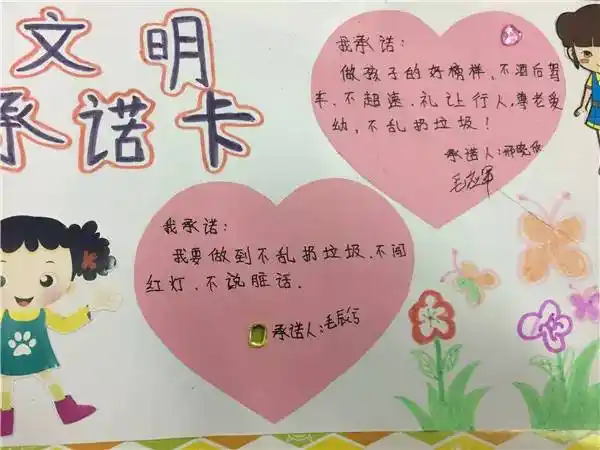 文明
承诺卡
我承诺：
做孩子的好榜样、不酒后驾
车、不超速、礼让行人、尊老爱
幼，不乱扔垃圾！
承诺人：邢晓
我承诺：
我要做到不乱扔垃圾、不闯
红灯、不说脏话．
承诺人：毛辰